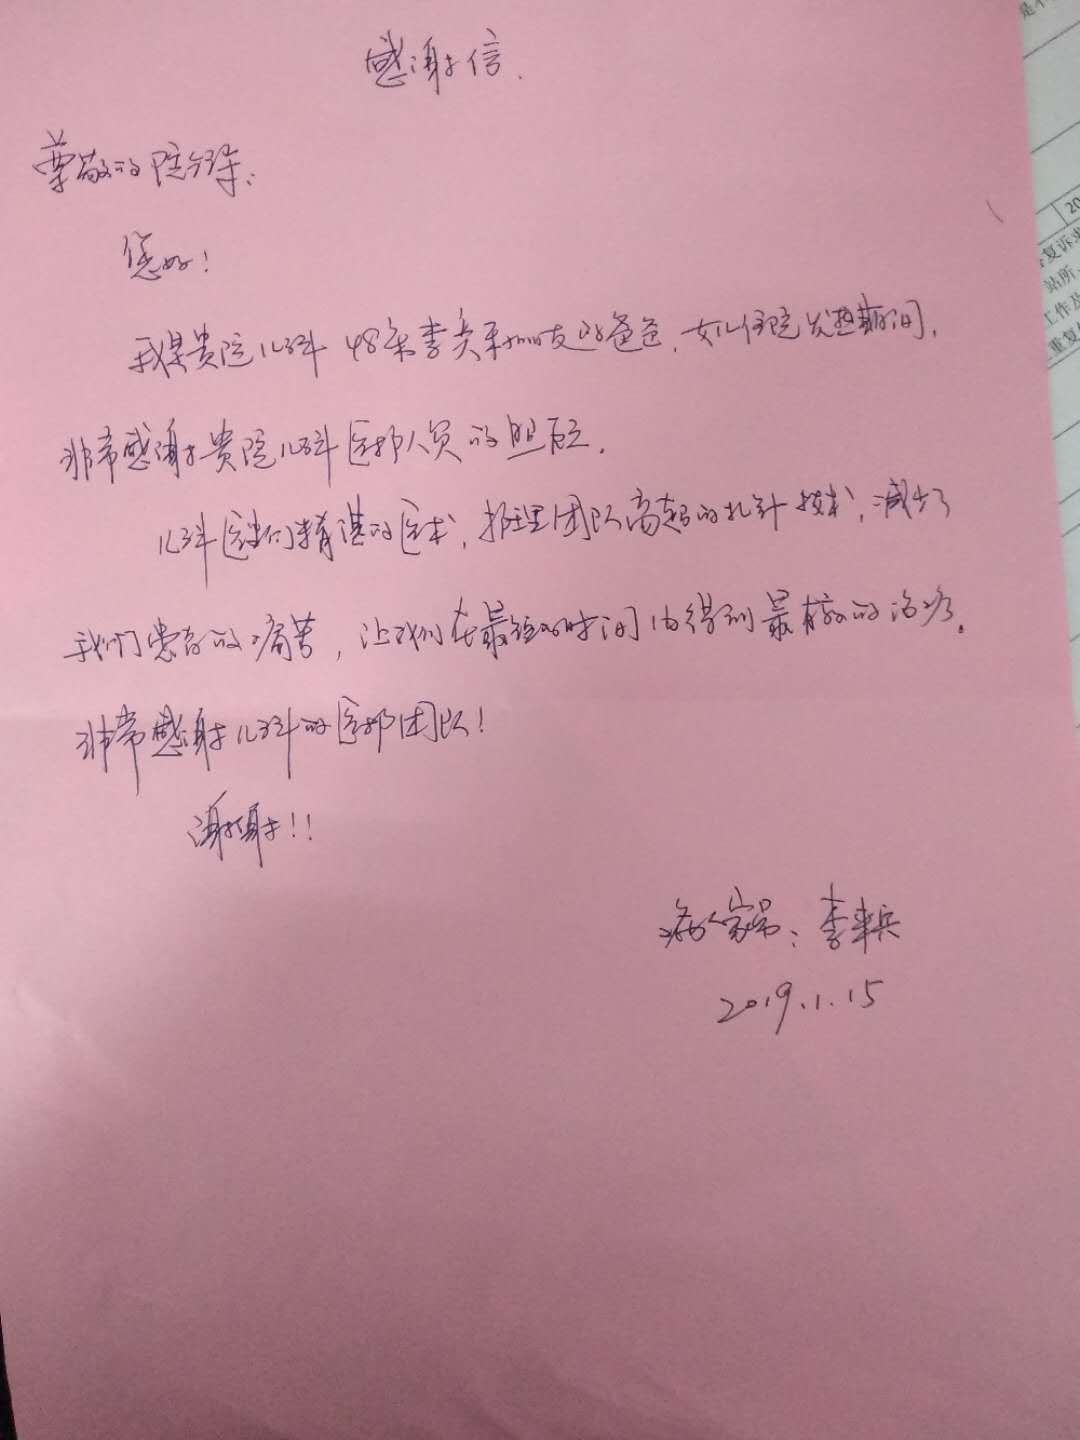 感谢信.
尊敬的院领导:
您好!
我是贵院儿科 48床李 小朋友的爸爸,女儿住院发热期间,
非常感谢贵院儿科医护人员的照顾.
儿科医生们精湛的医术,护理团队高超的扎针技术,减少了
我们患者的痛苦,让我们在最短的时间内得到最有效的治疗.
非常感谢儿科的医护团队!
谢谢!!
病人家属:李来兵
2019.1.15
是不
20
复诉
站所
工作及
重复